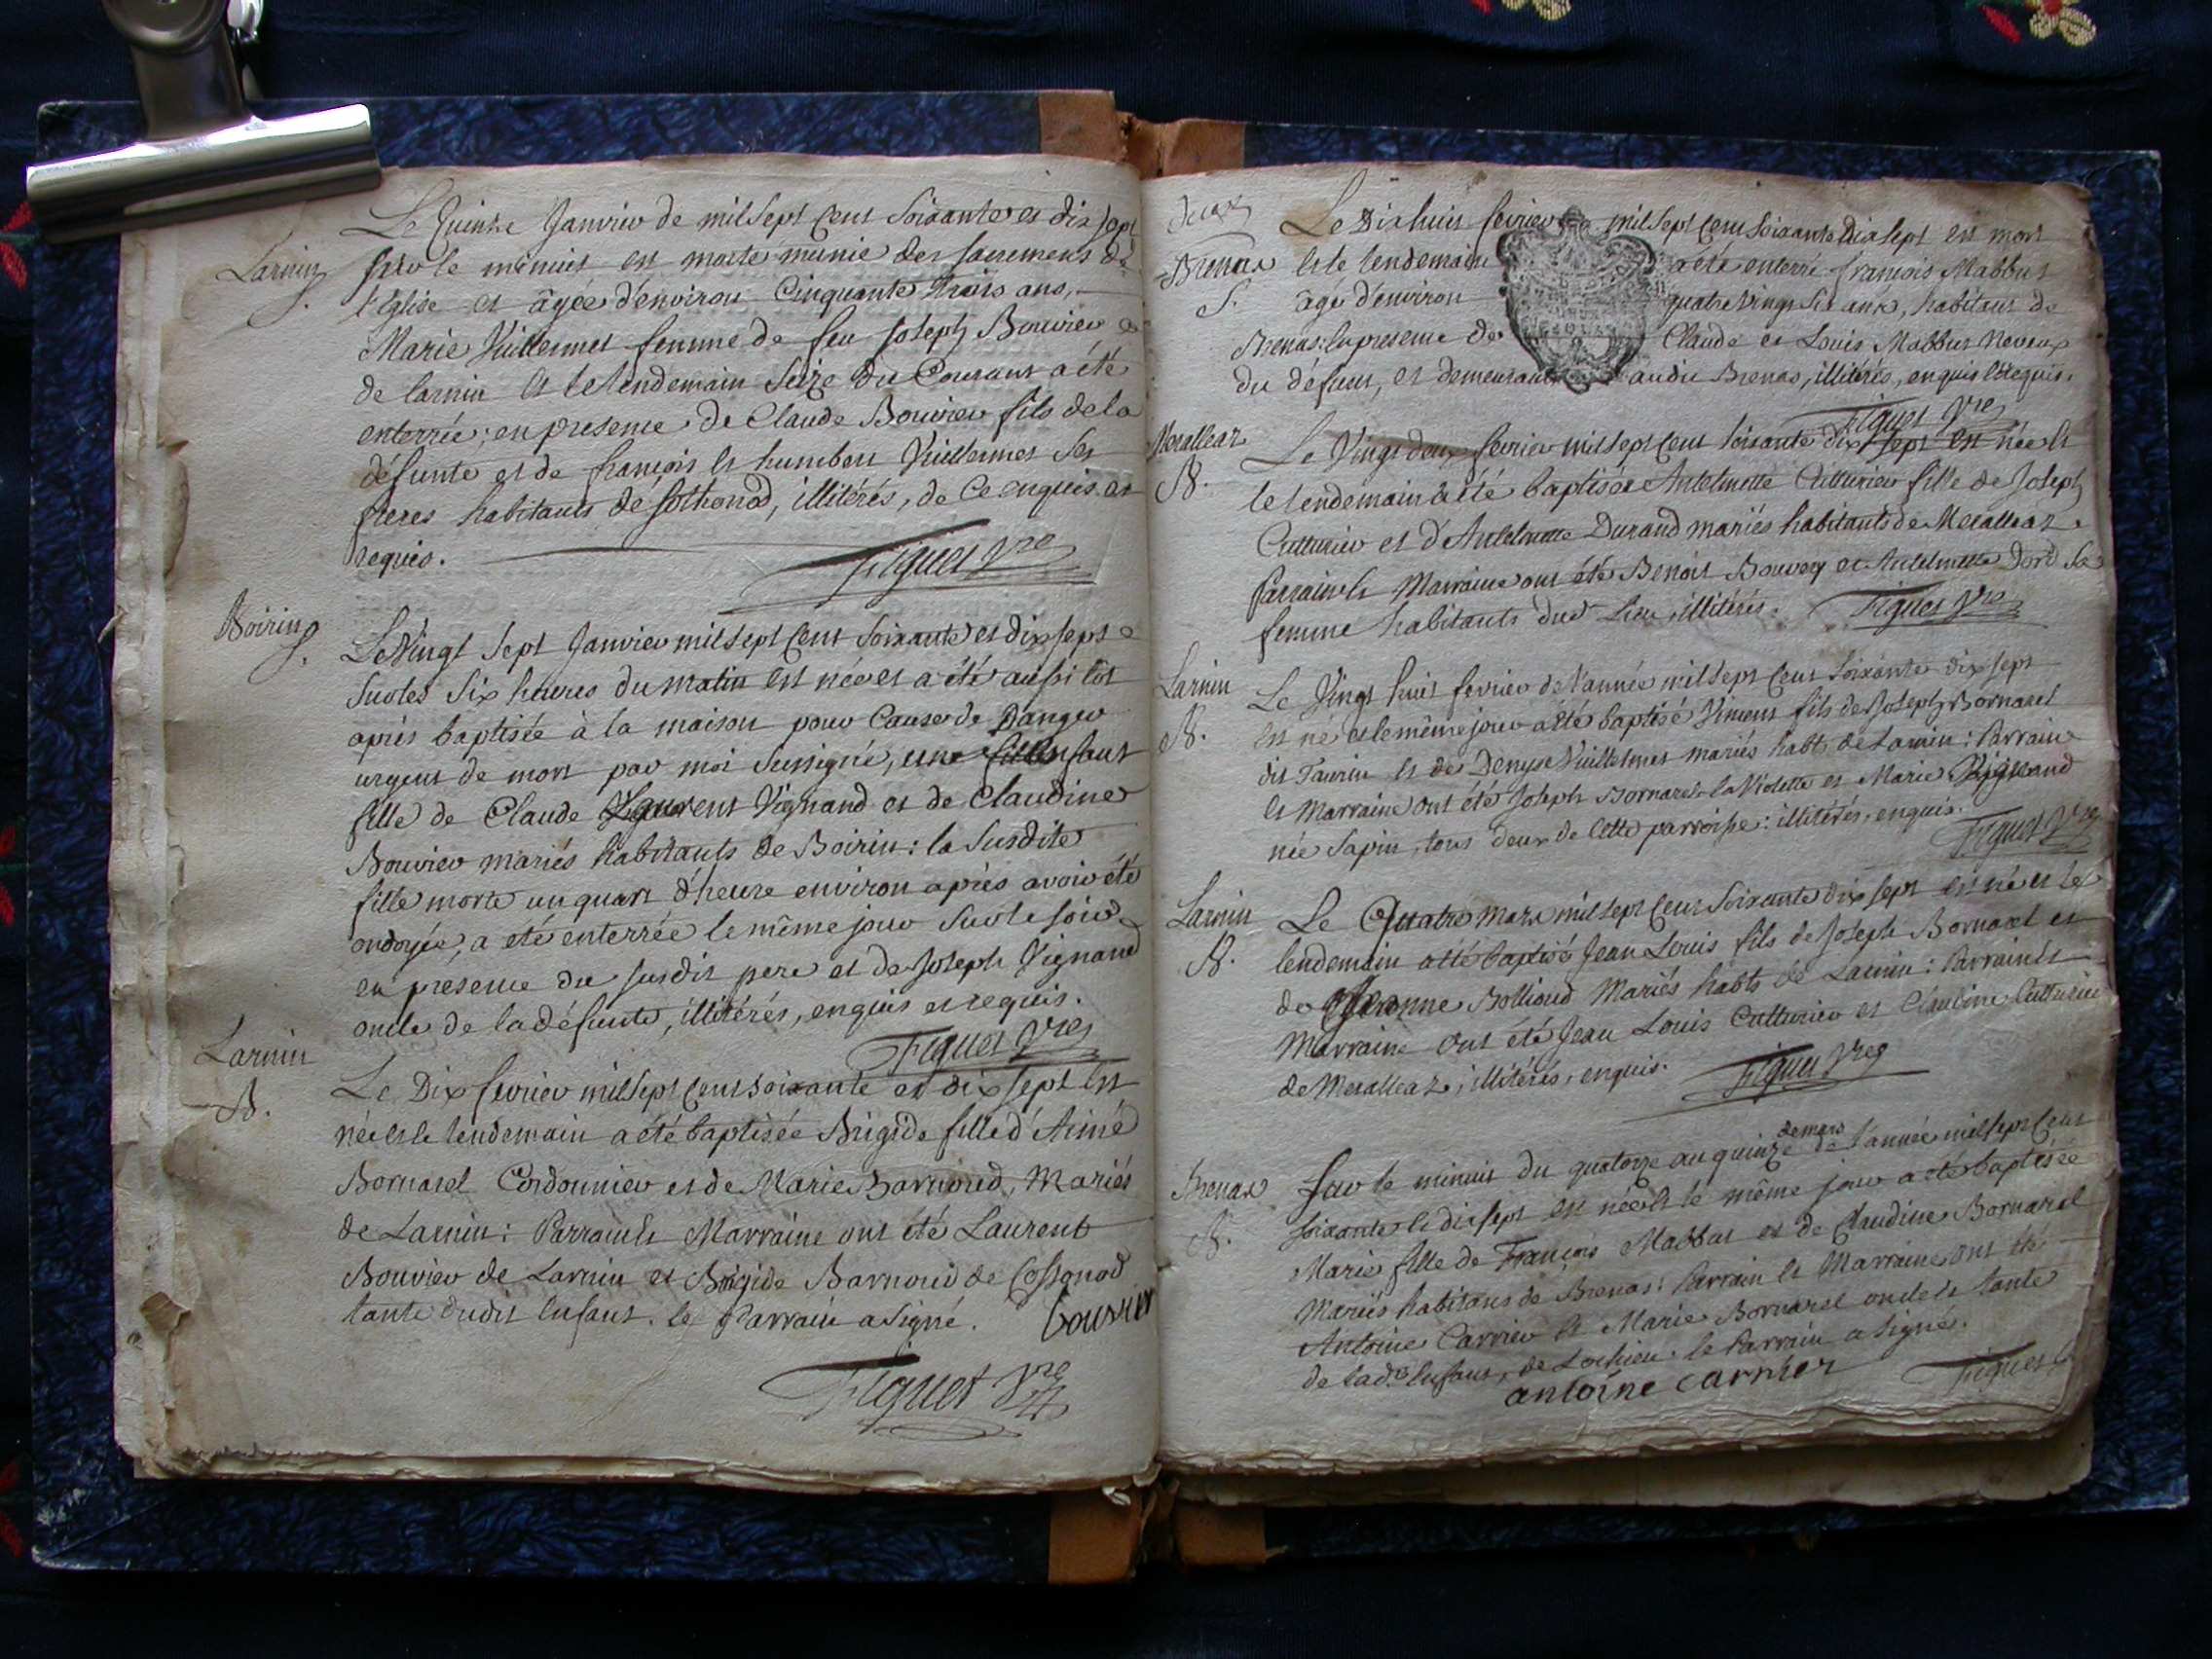 Larnin
S.
Le Quinze Janvier de mil Sept Cent Soixante et dix sept
sur le minuit est morte munie des sacremens de
l'Eglise et âgée d'environ Cinquante trois ans,
Marie Vuillermet femme de feu Joseph Bouvier
de Larnin et le lendemain Seize du Courant a été
enterrée; en presence de Claude Bouvier fils de la
défunte et de françois et humbert Vuillermet ses
freres habitants de Sothonod, illitérés, de Ce enquis et
requis.
Figuet Vre
Boirin
S.
Le Vingt Sept Janvier mil Sept Cent Soixante et dix sept
Sur les Six heures du matin est née et a été aussi tôt
après baptisée à la maison pour Cause de Danger
urgent de mort par moi Sussigné, une enfant
fille de Claude Laurent Vignand et de Claudine
Bouvier mariés habitants de Boirin: la Susdite
fille morte un quart d'heure environ après avoir été
ondoyée, a été enterrée le même jour Sur le soir
en presence du susdit pere et de Joseph Vignand
oncle de la défunte, illitérés, enquis et requis.
Figuet Vre
Larnin
B.
Le Dix fevrier mil Sept Cent Soixante et dix sept est
née et le lendemain a été baptisée Brigide fille d'Aimé
Bornarel Cordonnier et de Marie Barnoud, Mariés
de Larnin: Parrain et Marraine ont été Laurent
Bouvier de Larnin et Brigide Barnoud de Cossonod
tante dudit Enfant. le Parrain a Signé. bouvier
Figuet Vre
deux
Brenas
S.
Le Dixhuit fevrier mil Sept Cent Soixante Dix sept est mort
et le lendemain a été enterré françois Mabbus
âgé d'environ quatre vingt Six ans, habitant de
Brenas: la presence de Claude et Louis Mabbus Neveux
du défunt, et demeurant audit Brenas, illitérés, enquis et requis.
Figuet Vre
Meralleaz
B.
Le Vingt deux fevrier mil Sept Cent Soixante dix sept est née et
le lendemain a été baptisée Antelmette Cutturier fille de Joseph
Cutturier et d'Antelmette Durand mariés habitants de Meralleaz.
Parrain et Marraine ont été Benoit Bouvery et Antelmette Dord Sa
femme habitants dud. Lieu, illitérés. Figuet Vre
Larnin
B.
Le Vingt huit fevrier de l'année mil Sept Cent Soixante dix sept
est né et le même jour a été baptisé Vincent fils de Joseph Bornarel
dit Taurin et de Denyse Vuillelmet mariés habts. de Larnin: Parrain
et Marraine ont été Joseph Bornarel la Violette et Marie Vignand
née Sapin, tous deux de Cette parroisse: illitérés, enquis.
Figuet Vre
Larnin
B.
Le Quatre Mars mil Sept Cent Soixante dix sept est né et le
lendemain a été baptisé Jean Louis fils de Joseph Bornarel et
de Bollioud Mariés habts. de Larnin: Parrain et
Marraine ont été Jean Louis Cutturier et Claudine Cutturier
de Meralleaz, illitérés, enquis. Figuet Vre
Brenas
B.
Sur le minuit du quatorze au quinze de mars de l'année mil sept Cent
soixante et dix sept est née et le même jour a été baptisée
Marie fille de François Mabbus et de Claudine Bornarel
Mariés habitans de Brenas: Parrain et Marraine ont été
Antoine Carrier et Marie Bornarel oncle et tante
de lad. Enfant, de Lochieu. le Parrain a Signé.
antoine carrier Figuet